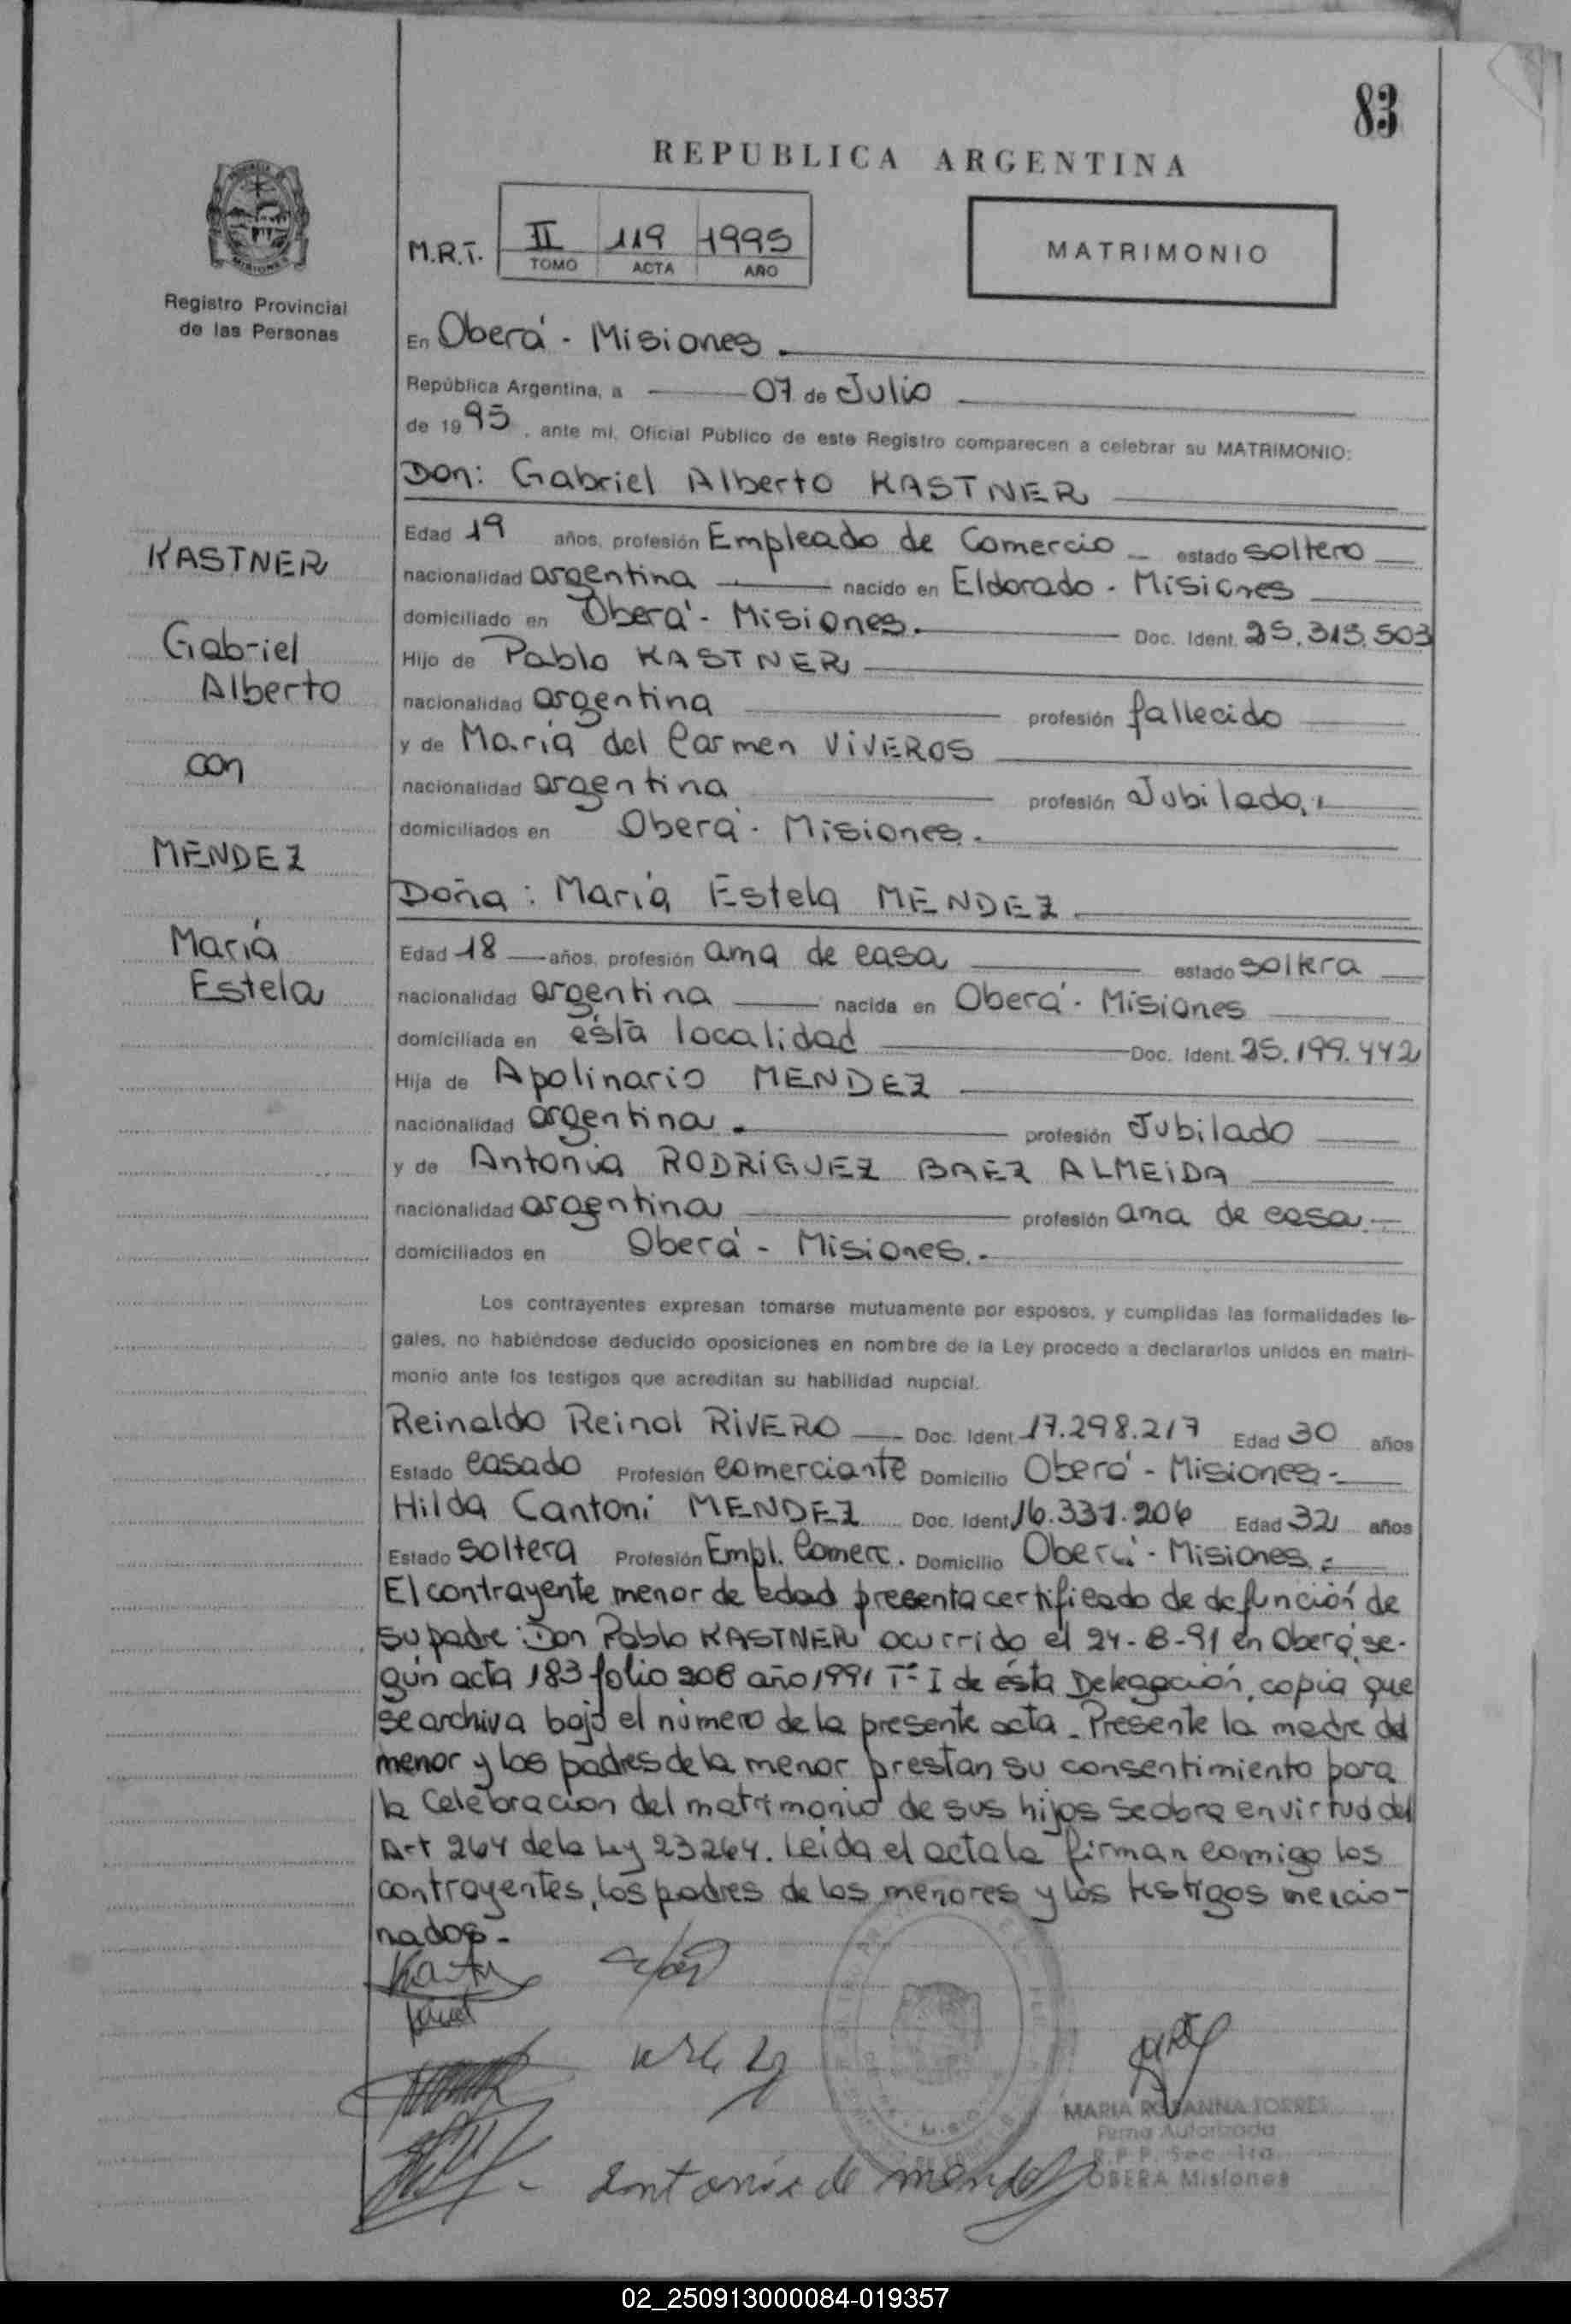 83
REPUBLICA ARGENTINA
M.R.T. II 119 1995
TOMO ACTA AÑO
MATRIMONIO
MISIONES
Registro Provincial
de las Personas
En Oberá - Misiones.
República Argentina, a 07 de Julio
de 1995, ante mí, Oficial Público de este Registro comparecen a celebrar su MATRIMONIO:
Don: Gabriel Alberto KASTNER
Edad 19 años, profesión Empleado de Comercio estado soltero
nacionalidad argentina nacido en Eldorado - Misiones
domiciliado en Oberá - Misiones. Doc. Ident. 25.315.503
Hijo de Pablo KASTNER
nacionalidad argentina profesión fallecido
y de María del Carmen VIVEROS
nacionalidad argentina profesión Jubilada.
domiciliados en Oberá - Misiones.
KASTNER
Gabriel
Alberto
con
MENDEZ
María
Estela
Doña: María Estela MENDEZ
Edad 18 años, profesión ama de casa estado soltera
nacionalidad argentina nacida en Oberá - Misiones
domiciliada en ésta localidad Doc. Ident. 25.199.442
Hija de Apolinario MENDEZ
nacionalidad argentina. profesión Jubilado
y de Antonia RODRIGUEZ BAEZ ALMEIDA
nacionalidad argentina profesión ama de casa.
domiciliados en Oberá - Misiones.
Los contrayentes expresan tomarse mutuamente por esposos, y cumplidas las formalidades le-
gales, no habiéndose deducido oposiciones en nombre de la Ley procedo a declararlos unidos en matri-
monio ante los testigos que acreditan su habilidad nupcial.
Reinaldo Reinol RIVERO Doc. Ident. 17.298.217 Edad 30 años
Estado casado Profesión comerciante Domicilio Oberá - Misiones
Hilda Cantoni MENDEZ Doc. Ident. 16.331.206 Edad 32 años
Estado soltera Profesión Empl. Comerc. Domicilio Oberá - Misiones.
El contrayente menor de edad presenta certificado de defunción de
su padre Don Pablo KASTNER ocurrido el 24-8-91 en Oberá, se-
gún acta 183 folio 208 año 1991 Tº I de ésta Delegación, copia que
se archiva bajo el número de la presente acta. Presente la madre del
menor y los padres de la menor prestan su consentimiento para
la Celebración del matrimonio de sus hijos se obra en virtud del
Art 264 de la Ley 23264. Leida el acta la firman conmigo los
contrayentes, los padres de los menores y los testigos mencio-
nados.
Antonia de mendez
MARIA ROSANNA TORRES
Firma Autorizada
R.P.P. Sec. 1ra.
OBERA Misiones
02_250913000084-019357